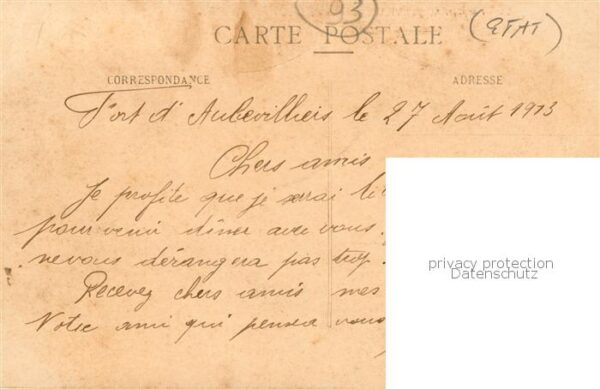 93
CARTE POSTALE (ETAT)
CORRESPONDANCE ADRESSE
Fort d'Aubevilliers le 27 Août 1913
Chers amis
Je profite que je serai li
pour venir diner avec vous.
ne vous dérangera pas trop.
Recevez chers amis mes
Votre ami qui pensera vous
privacy protection
Datenschutz